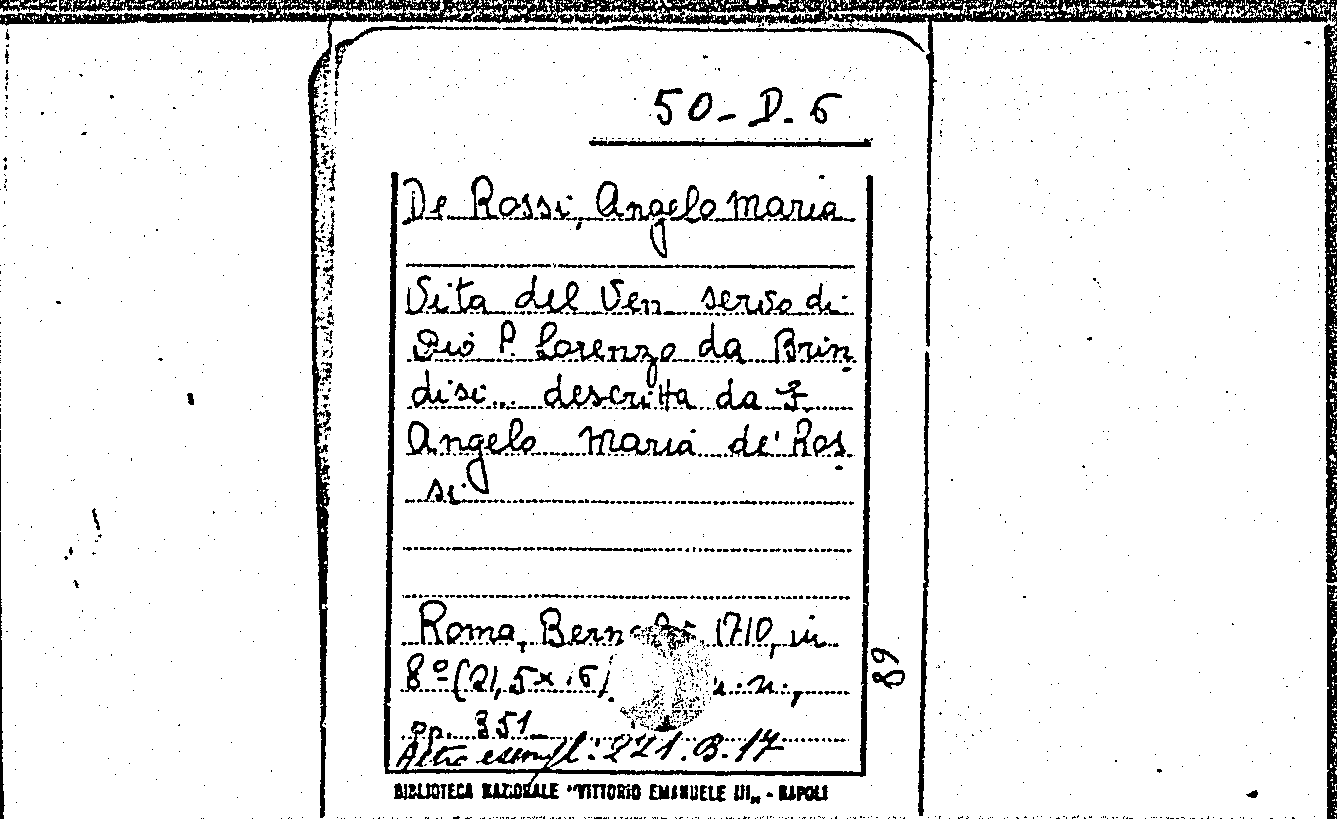 50-D.6
De Rossi, Angelo Maria
Vita del Ven. servo di
Dio P. Lorenzo da Brin
disi... descritta da F.
Angelo Maria de' Ros
si
Roma, 1710, in
8º (21,5x16) n.n.,
pp. 351
Altro esempl: 221.B.17
89
BIBLIOTECA NAZIONALE "VITTORIO EMANUELE III„ - NAPOLI